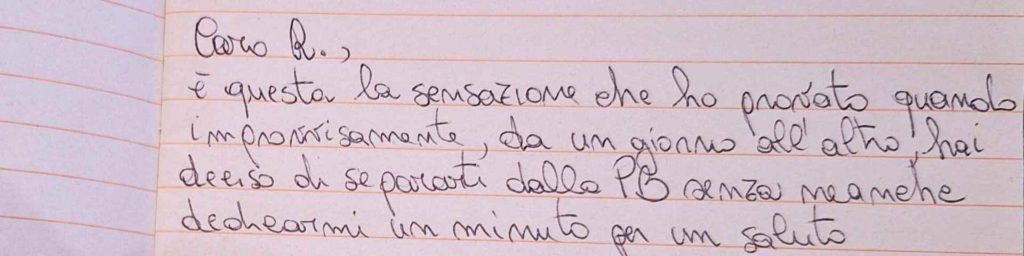 Caro R.,
è questa la sensazione che ho provato quando
improvvisamente, da un giorno all'altro, hai
deciso di separarti dalla PB senza neanche
dedicarmi un minuto per un saluto